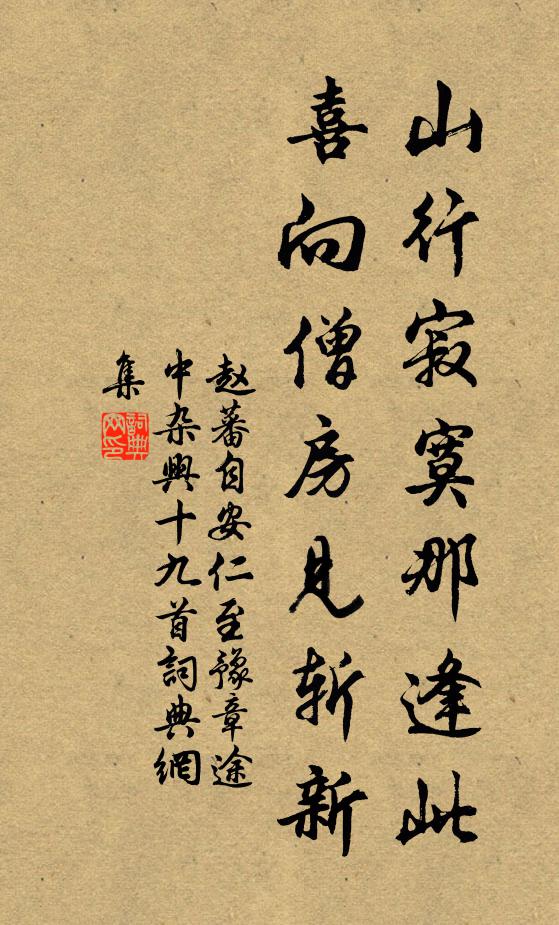 山行寂寞那逢此
喜向僧房見斩新
赵蕃自安仁至豫章途
中杂興十九首詞典網
集
詞典
网印